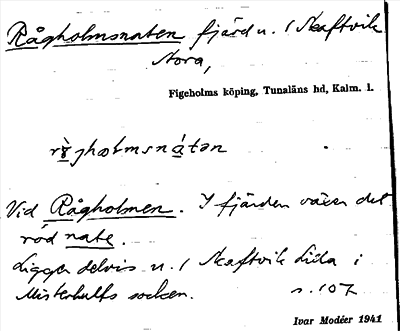 Rågholmsnaten fjärd u. / Skaftvik
Norra,
Figeholms köping, Tunaläns hd, Kalm. l.
rɷ̀jhɷlmsnátən
Vid Rågholmen. I fjärden växer det
röd nate.
Ligger delvis u. / Skaftvik Lilla i
Misterhults socken. s. 107
Ivar Modéer 1941